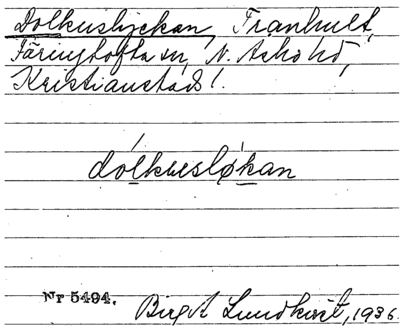 Dolkuslyckan, Tranhult,
Färingtofta sn, N. Åsbo hd,
Kristianstads l.
dolkusløkan
Nr 5494.
Birgit Lundkvist, 1936.